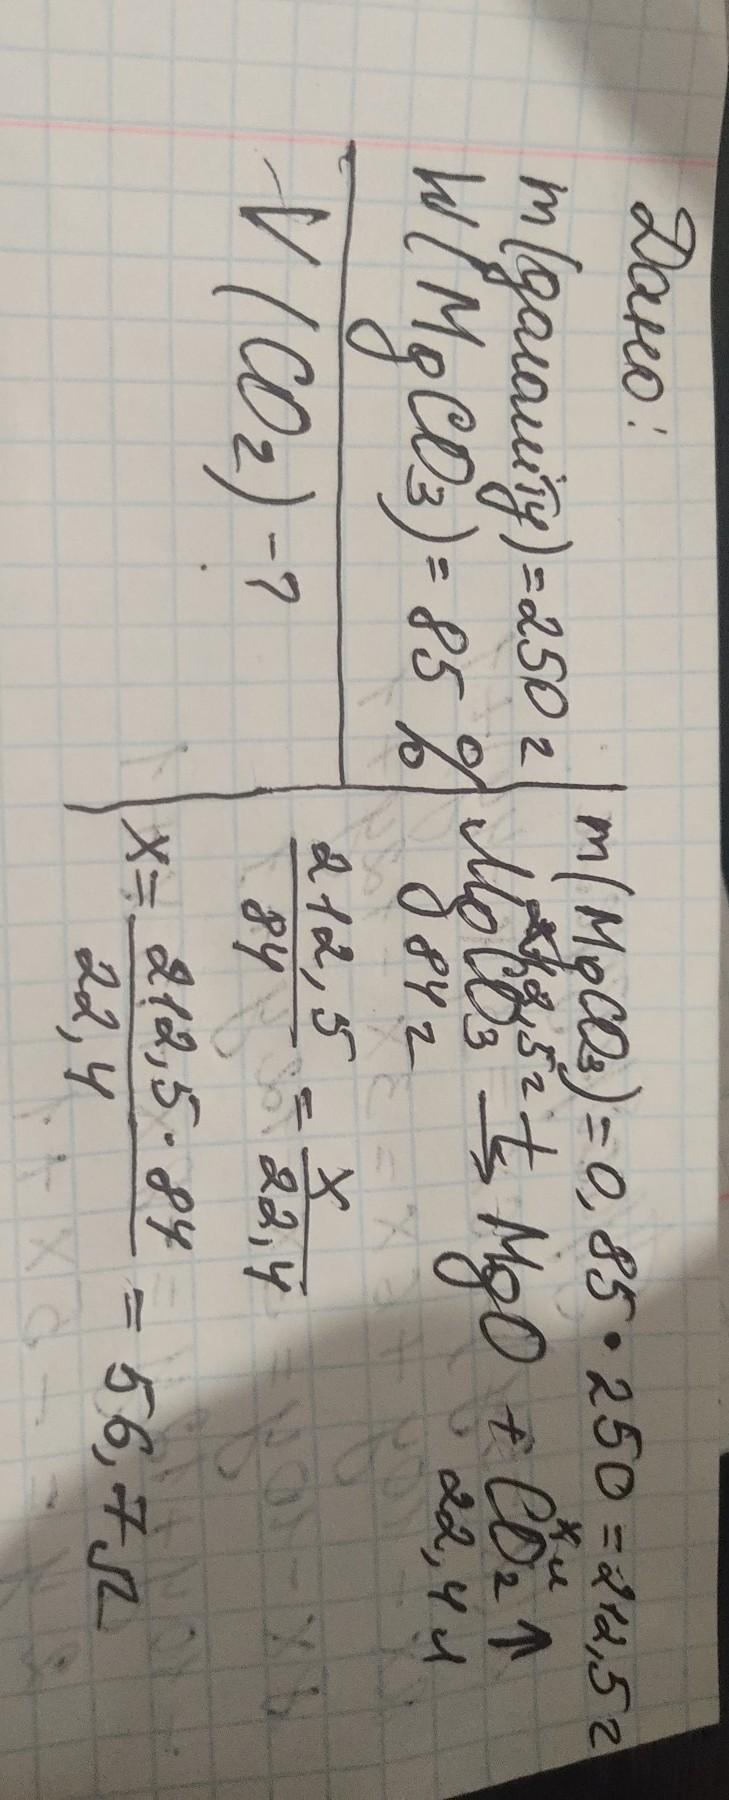 Дано:
m(даломіту)=250 г
W(MgCO₃)=85 %
V(CO₂)-?
m(MgCO₃)=0,85·250=212,5 г
212,5 г x л
MgCO₃ t→ MgO + CO₂↑
84 г 22,4 л
212,5/84 = x/22,4
x= 212,5·84/22,4 = 56,7 л